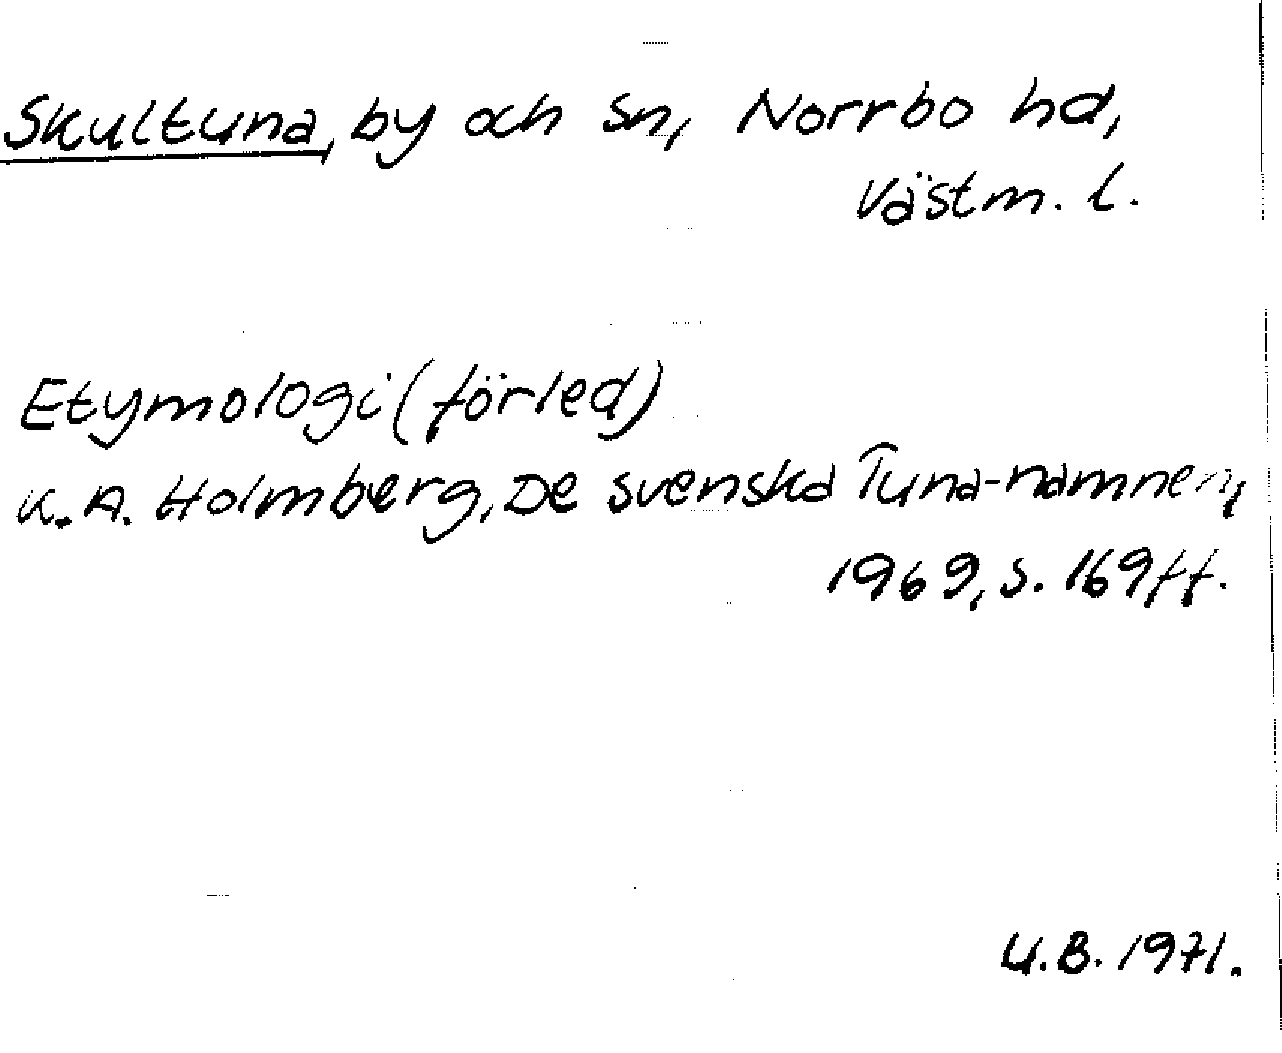 Skultuna, by och sn, Norrbo hd,
Västm. l.
Etymologi (förled)
K. A. Holmberg, De svenska Tuna-namnen,
1969, s. 169 ff.
U.B. 1971.